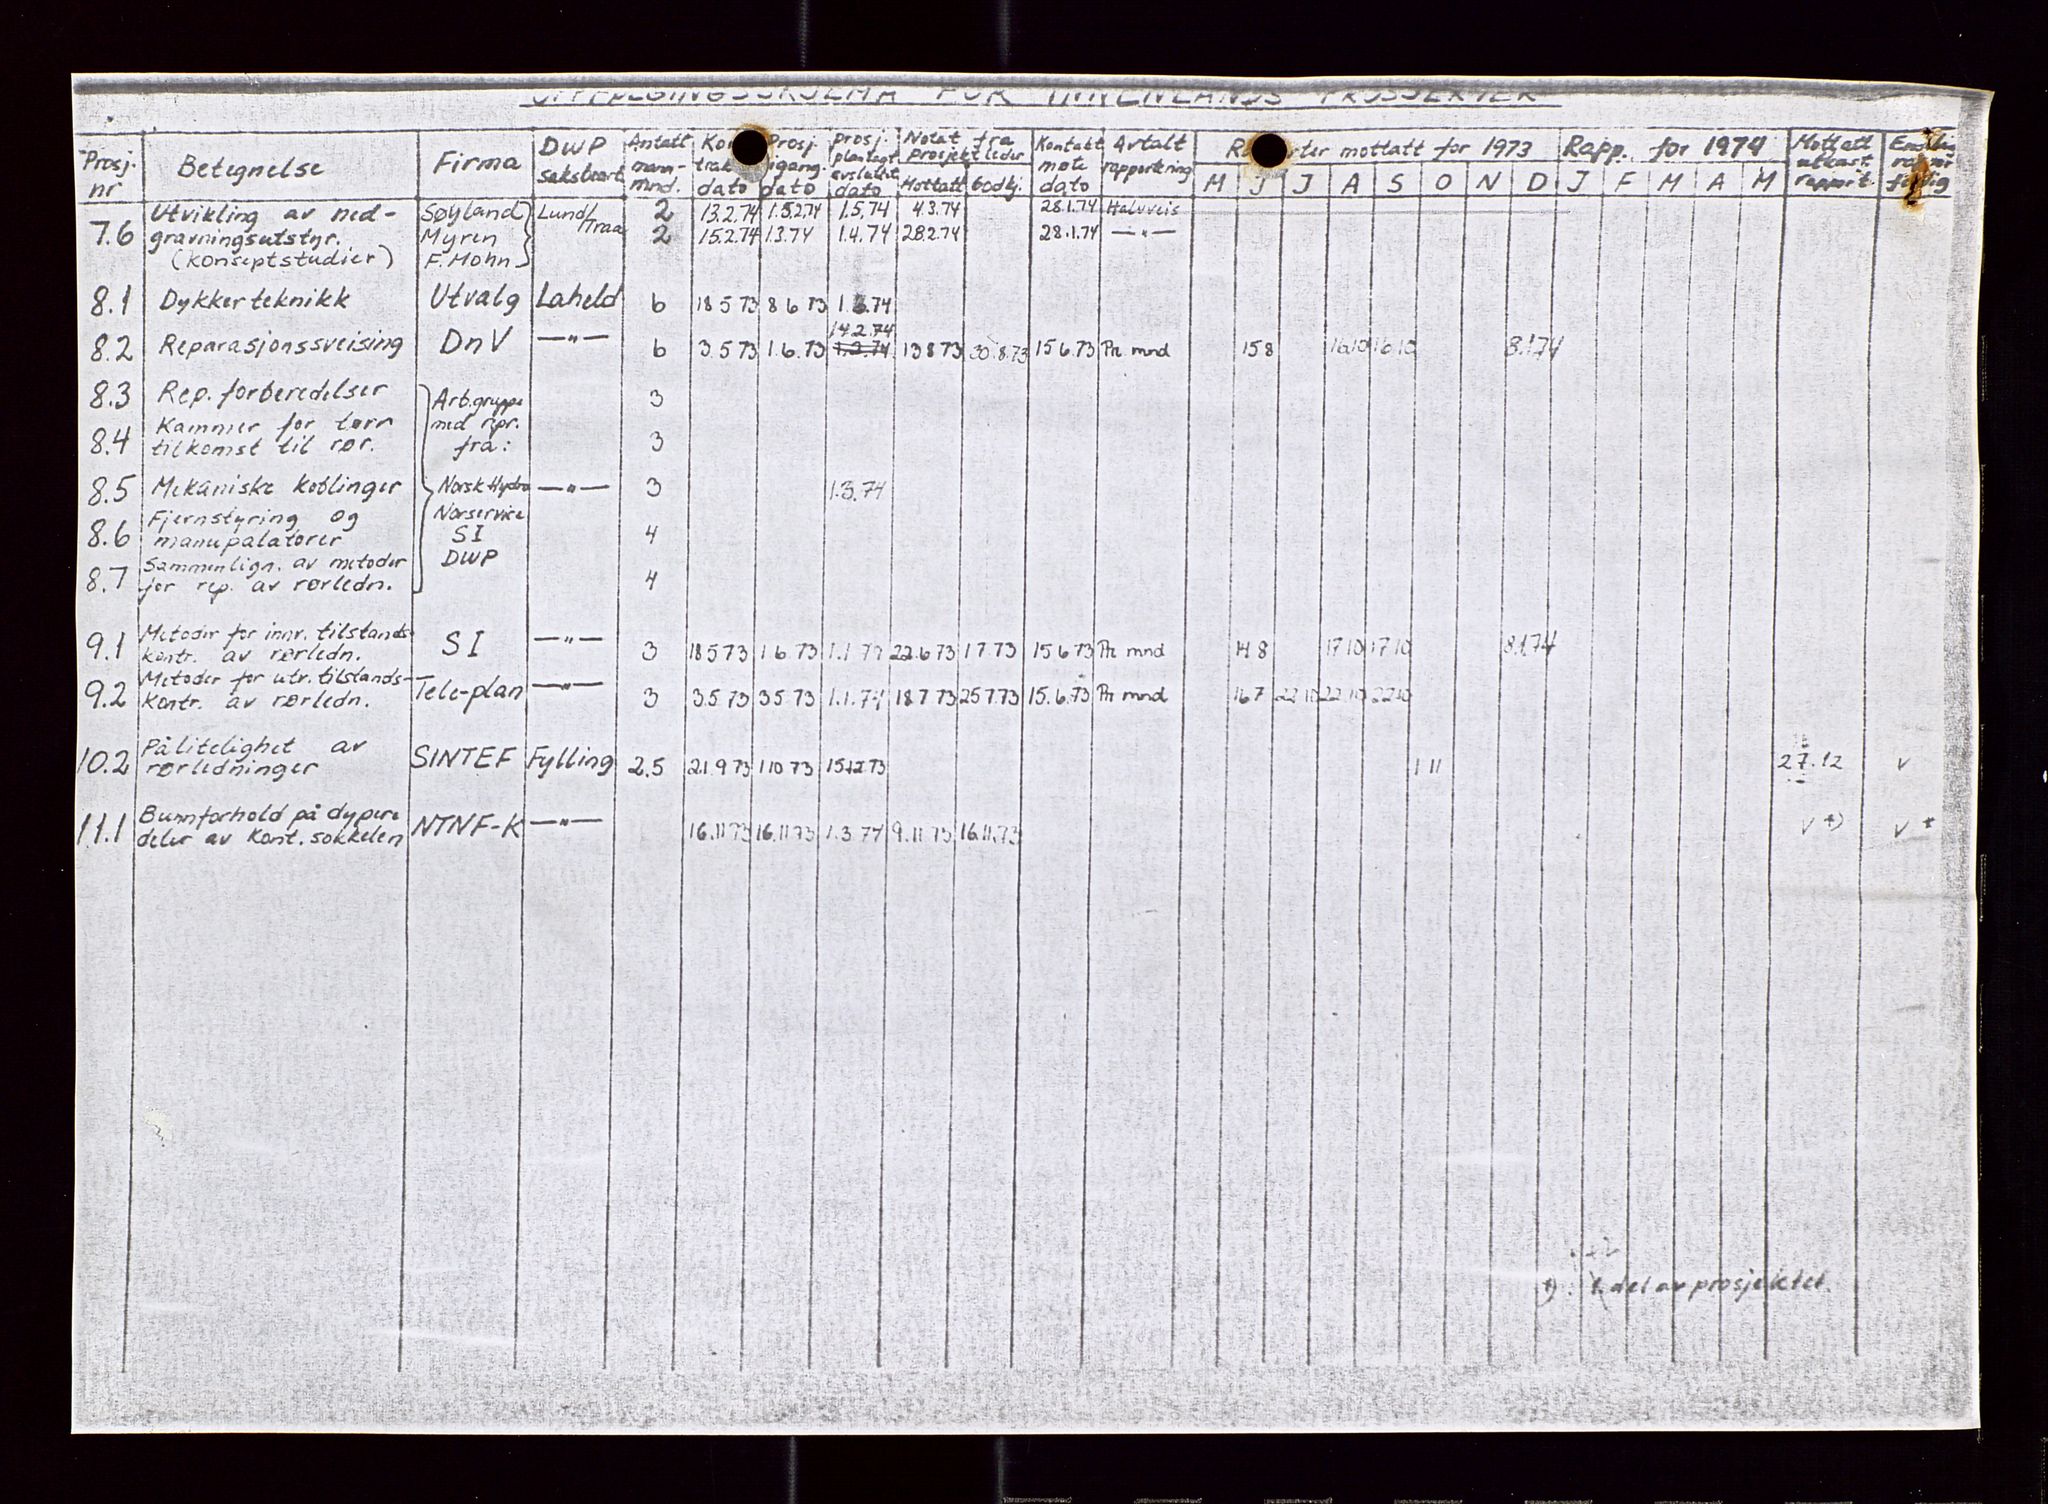 FOR INNENLANDS PROSJEKTER
Prosj. nr
Betegnelse
Firma
DWP saksbeart
Antatt mann- mnd.
dato
Prosj. igang. dato
Prosj. planlagt avsluttet dato
Notat fra prosjektleder
Mottatt
Godkj.
Kontakt møte dato
Avtalt rapportering
mottatt for 1973
Rapp. for 1974
M J J A S O N D J F M A M
Mottatt utkast rapport.
7.6 Utvikling av ned- Søyland Lund/ 2 13.2.74 1.5.2.74 1.5.74 4.3.74 28.1.74 Halvveis
gravningsutstyr. Myren Traa 2 15.2.74 1.3.74 1.4.74 28.2.74 28.1.74 —"—
(konseptstudier) F. Mohn
8.1 Dykkerteknikk Utvalg Laheld 6 18 5 73 8 6 73
14.2.74
8.2 Reparasjonssveising DnV —"— 6 3.5 73 1.6.73 1.2.74 13 8 73 30.8.73 15 6.73 Pr. mnd 15 8 16.10 16 10 8.1.74
8.3 Rep. forberedelser Arb.gruppe 3
8.4 Kammer for tørr med repr. 3
tilkomst til rør. fra:
8.5 Mekaniske koblinger Norsk Hydro —"— 3 1.3.74
Fjernstyring og Norservice
8.6 manupalatører SI 4
8.7 Sammenlign. av metoder DWP 4
for rep. av rørledn.
9.1 Metoder for innr. tilstands- SI —"— 3 18 5 73 1 6 73 1.1 74 22.6 73 1 7.73 15 6 73 Pr. mnd 14 8 17 10 17 10 8.1.74
kontr. av rørledn.
9.2 Metoder for utr. tilstands- Tele-plan —"— 3 3.5 73 3 5 73 1.1.74 18.7 73 25 7.73 15.6.73 Pr. mnd 16 7 22 10 22.10 22.10
kontr. av rørledn.
10.2 Pålitelighet av SINTEF Fylling 2.5 21.9 73 1 10 73 15 12 73 1 11 27.12 v
rørledninger
11.1 Bunnforhold på dypere NTNF-K —"— 16.11 73 16.11 73 1.3 74 9.11 73 16.11.73 v +) v +
deler av kont. sokkelen
+) 1. del av prosjektet.